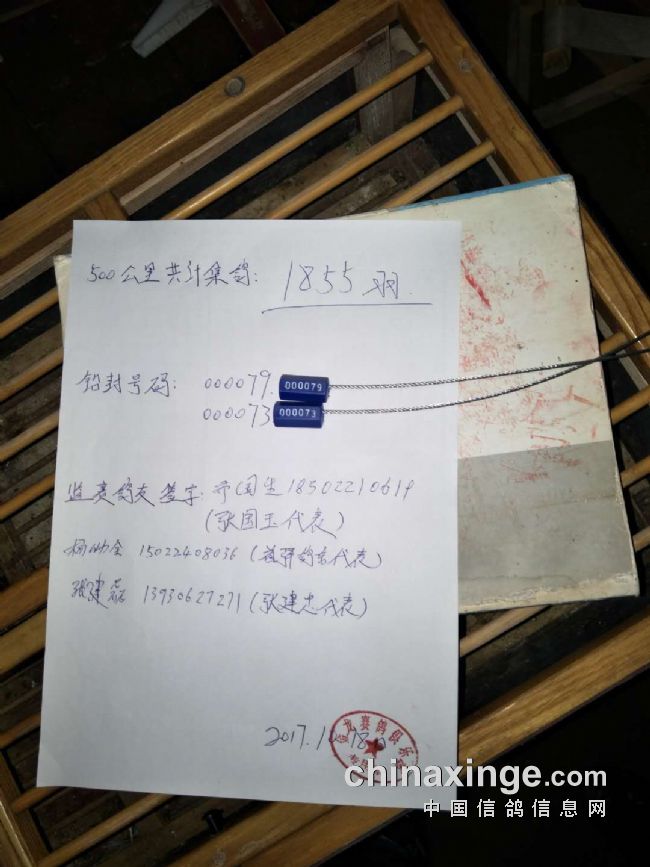 500公里共计集鸽: 1855羽.
铅封号码: 000079. 000079
000073 000073
监赛鸽友签字: 国生 1850221061
(张国玉代表)
15022408036 (鸽舍代表)
张建磊 13930627271 (张建忠代表)
2017.1 18日
龙赛鸽俱乐
chinaxinge.com
中国信鸽信息网